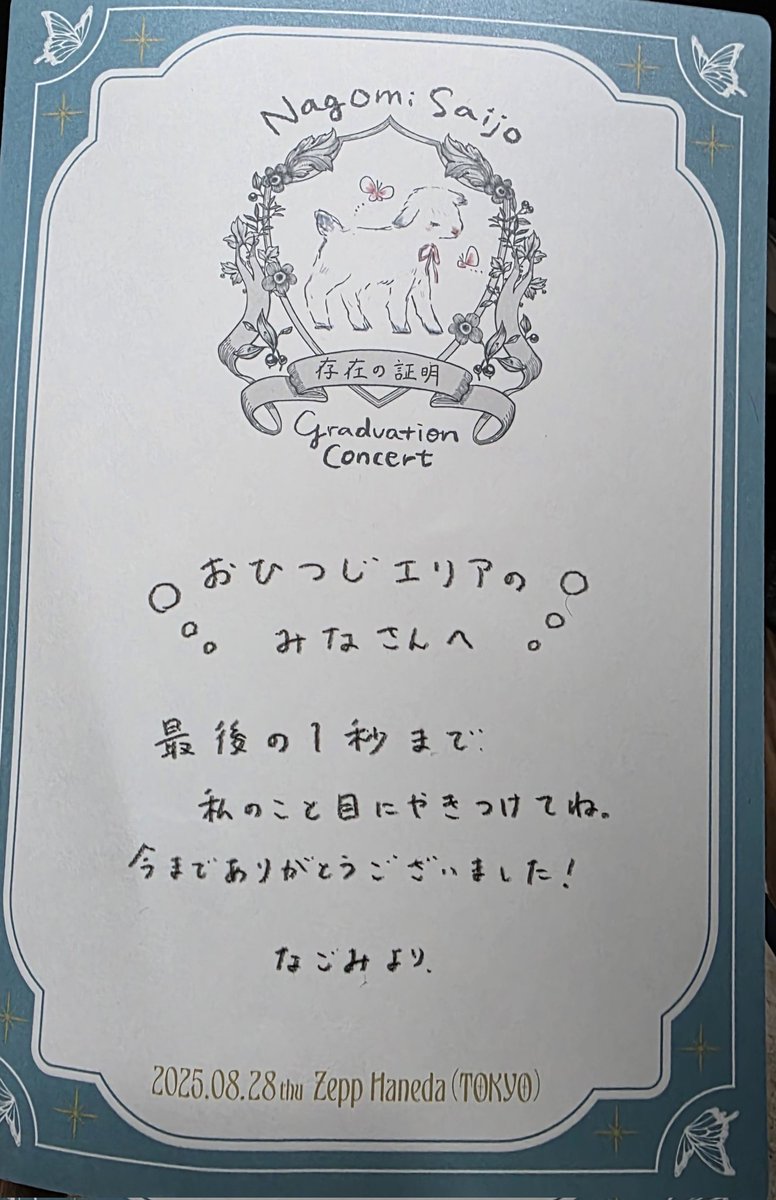 Nagomi Saijo
存在の証明
Graduation
Concert
おひつじエリアの
みなさんへ
最後の1秒まで
私のこと目にやきつけてね。
今までありがとうございました!
なごみより.
2025.08.28 thu Zepp Haneda (TOKYO)